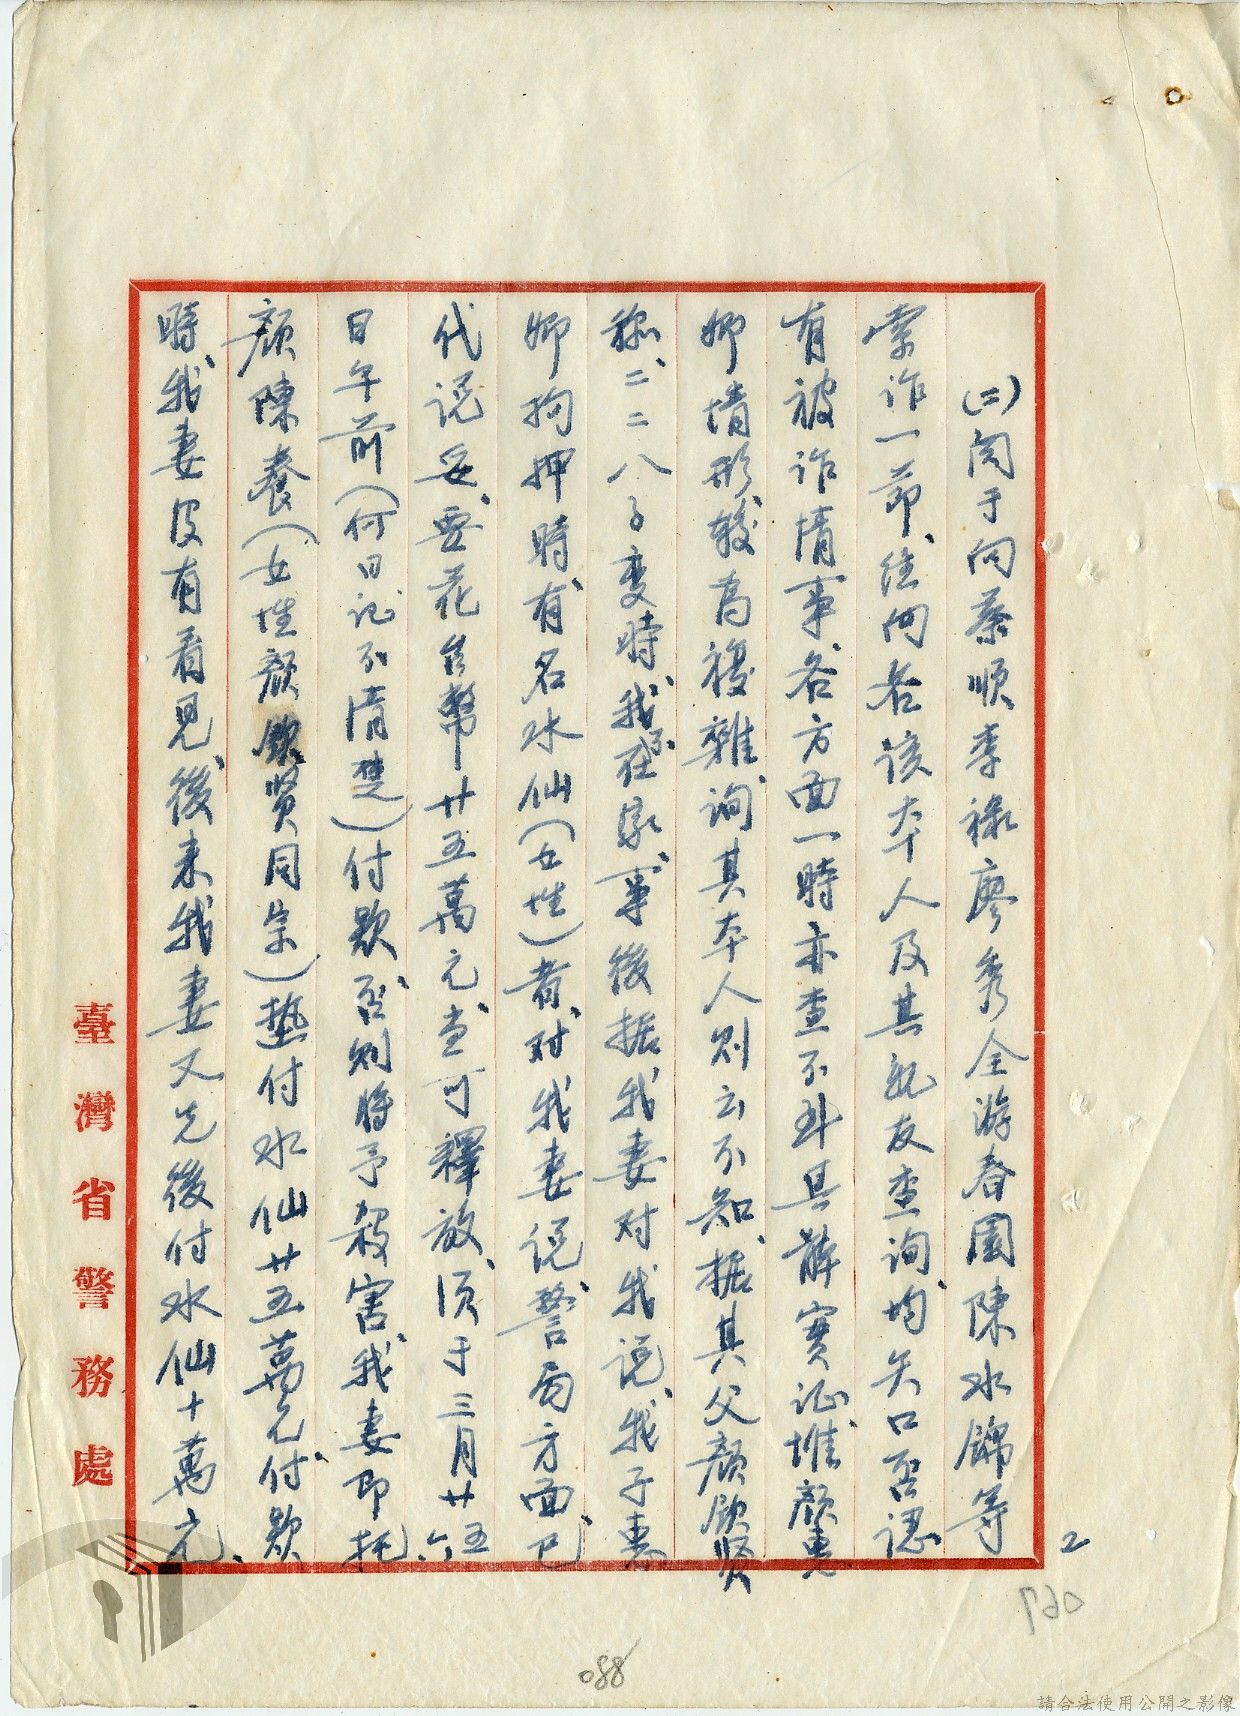 (二)関于向蔡順李祿廖秀全游春園陳水錦等
索诈一節、往向各該本人及其親友查詢、均矢口否認
有被诈情事、各方面一時亦查不到具體實证、惟顏惠
卿情形較為複雜、詢其本人則云不知、据其父顏欽賢
称、二二八事變時、我不在家、事後据我妻对我说、我子惠
卿拘押時、有名水仙(女性)者、对我妻说、警局方面已
代说妥、要花台幣廿五萬元、当可釋放、須于三月廿五、六
日午前(何日记不清楚)付款、否則將予殺害、我妻即托
顏陳養(女性顏欽賢同宗)墊付水仙廿五萬元、付款
時、我妻没有看見、後来我妻又先後付水仙十萬元、
臺灣省警務處
2
067
088
請合法使用公開之影像